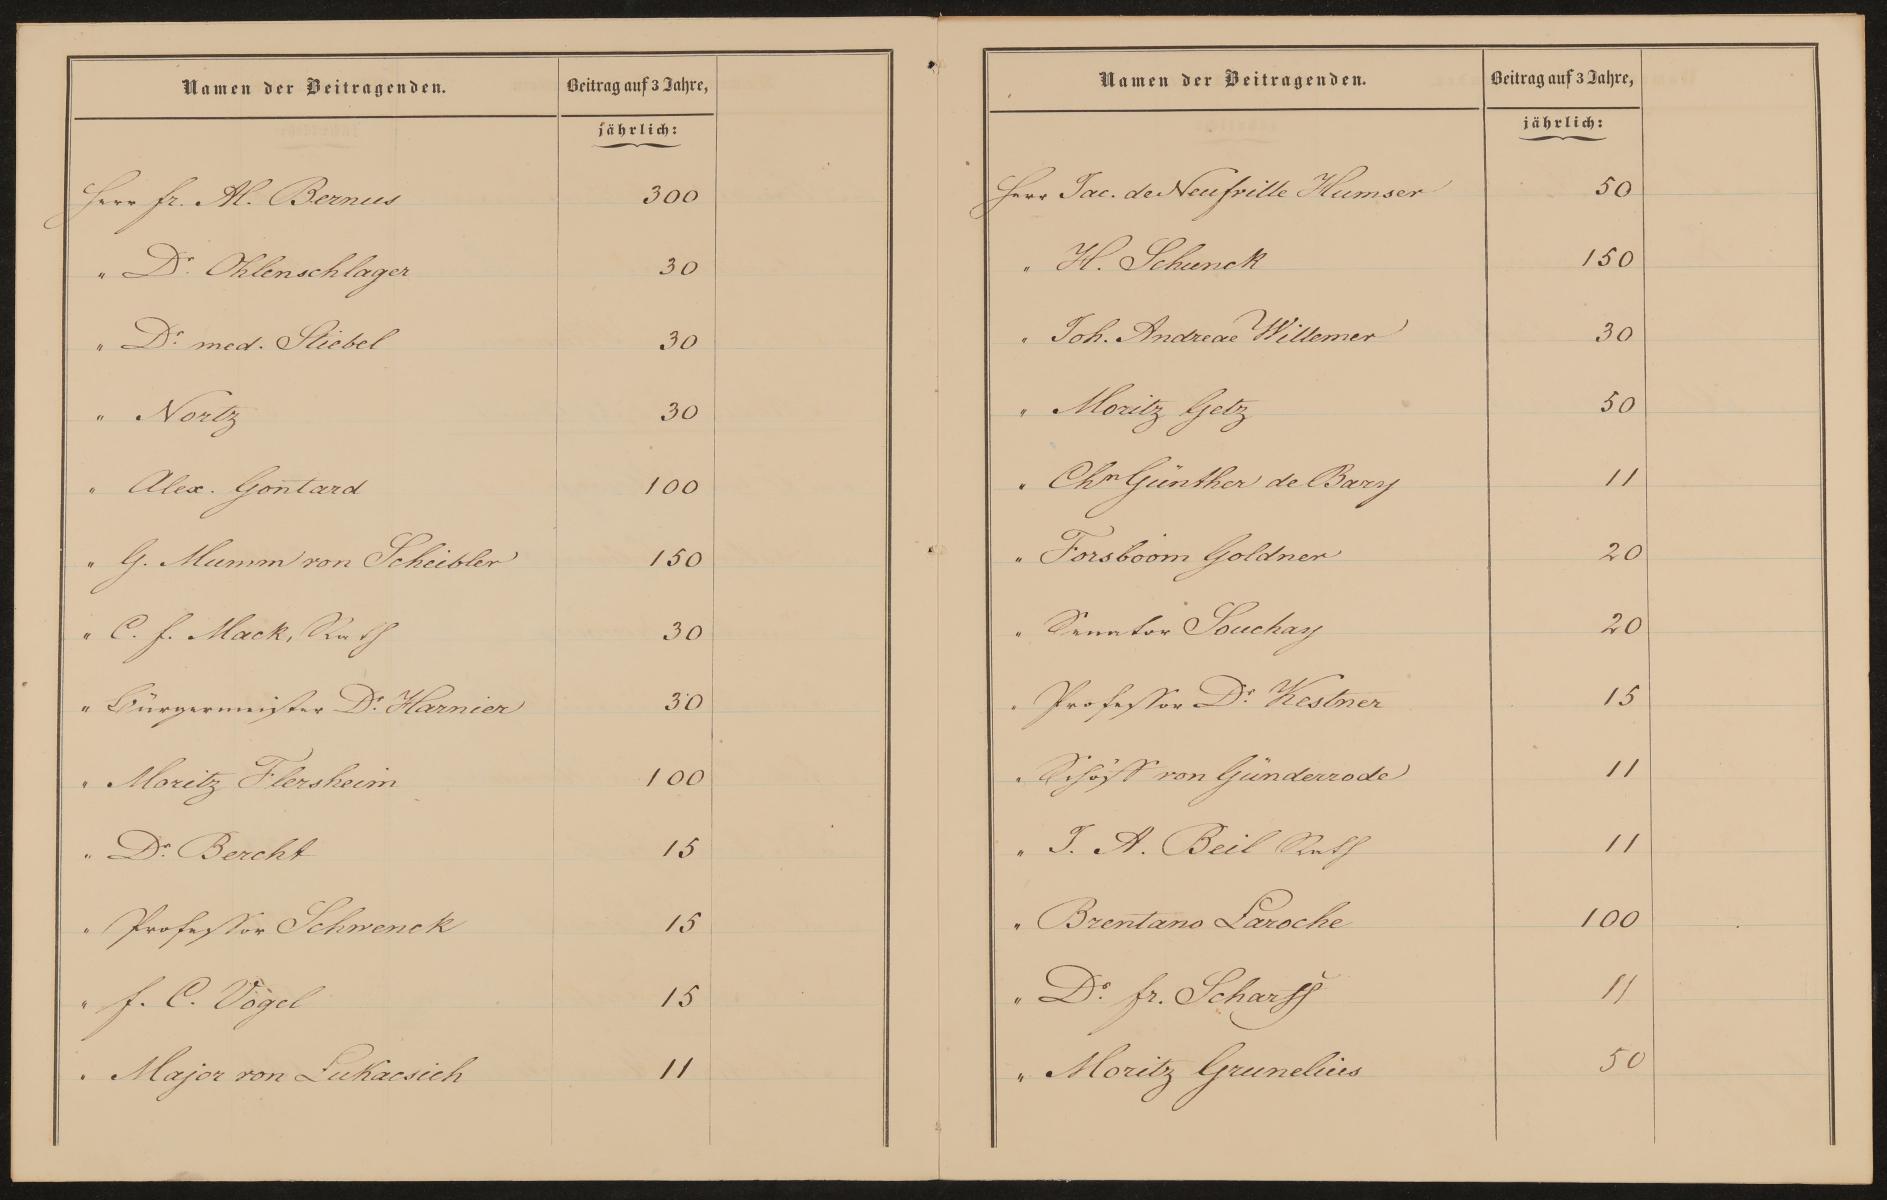 Namen der Beitragenden. Beitrag auf 3 Jahre,
jährlich:
Herr Fr. Al. Bernus 300
" Dr. Ohlenschlager 30
" Dr. med. Stiebel 30
" Nortz 30
" Alex. Gontard 100
" G. Mumm von Scheibler 150
" C. F. Mack, Rath 30
" Bürgermeister Dr. Harnier 30
" Moritz Flersheim 100
" Dr. Bercht 15
" Professor Schwenck 15
" F. C. Vogel 15
" Major von Lukacsich 11
Namen der Beitragenden. Beitrag auf 3 Jahre,
jährlich:
Herr Jac. de Neufville Humser 50
" H. Schunck 150
" Joh. Andreae Willemer 30
" Moritz Getz 50
" Chn Günther de Bary 11
" Forsboom Goldner 20
" Senator Souchay 20
" Professor Dr. Kestner 15
" Schöff von Günderrode 11
" J. A. Beil Rath 11
" Brentano Laroche 100
" Dr. Fr. Scharff 11
" Moritz Grunelius 50